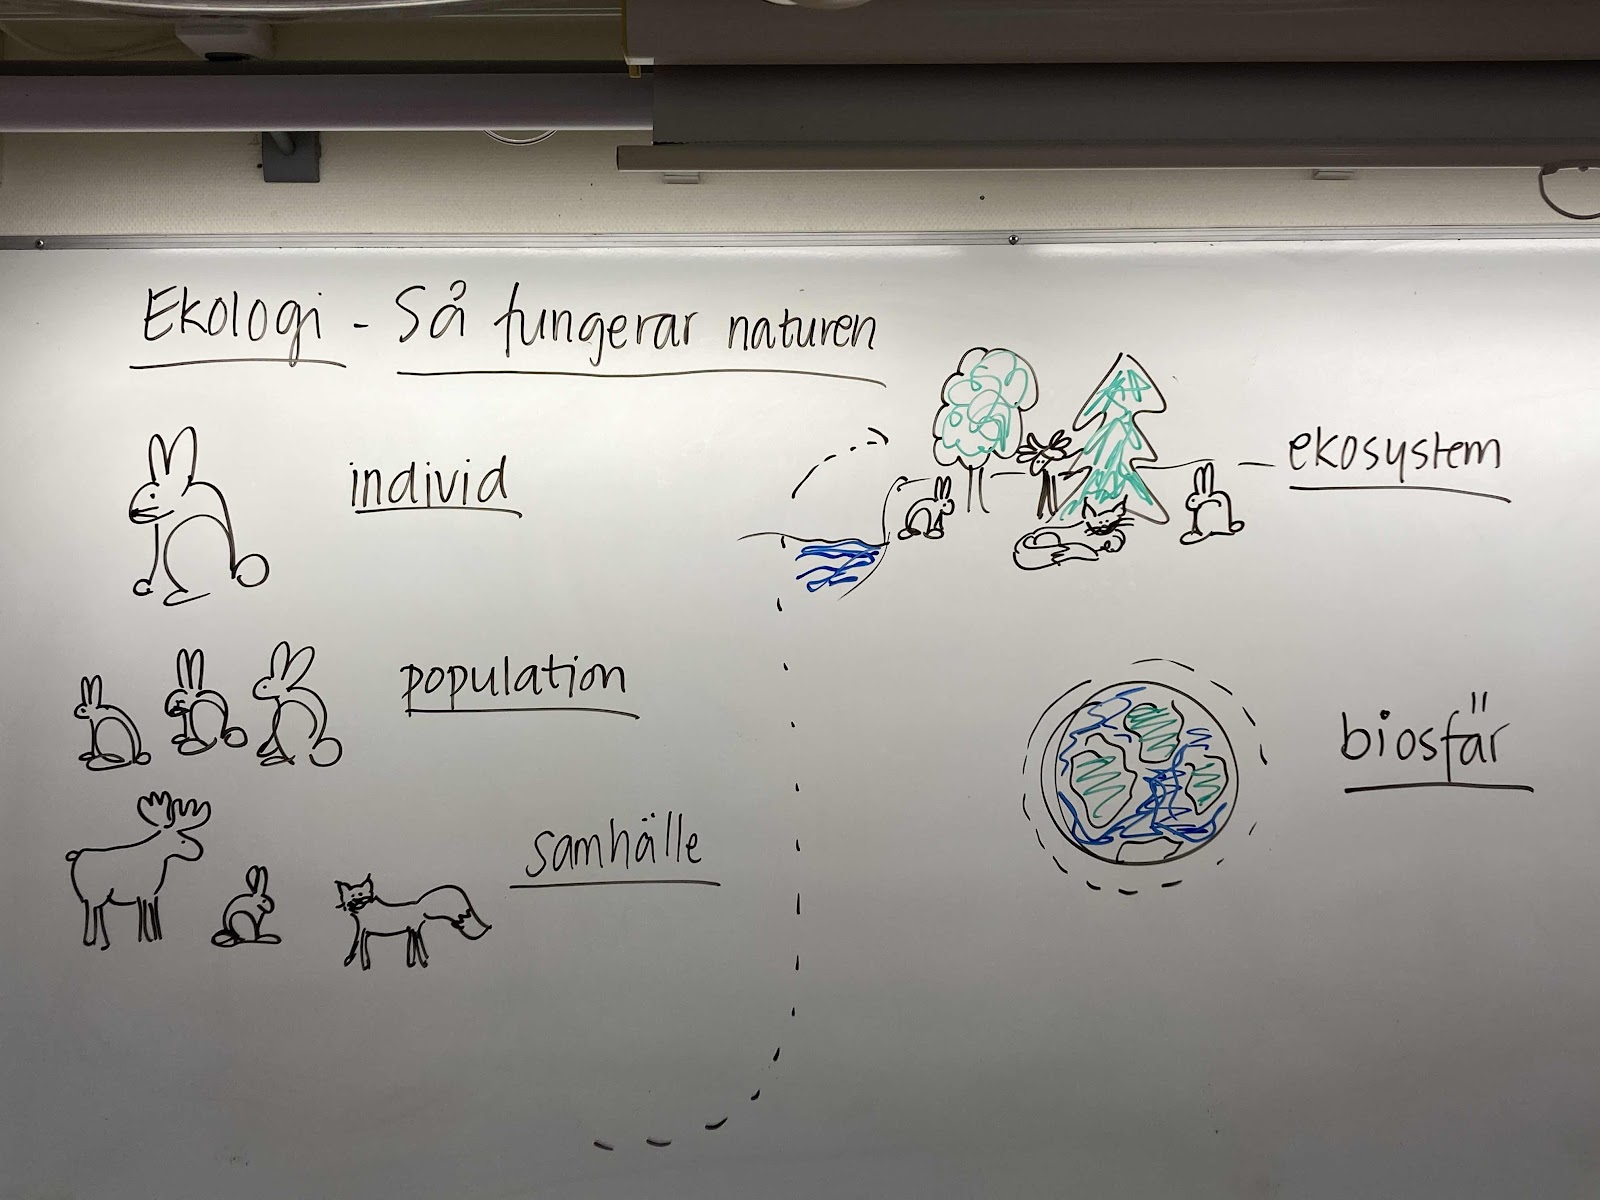 Ekologi - Så fungerar naturen
individ
population
samhälle
ekosystem
biosfär